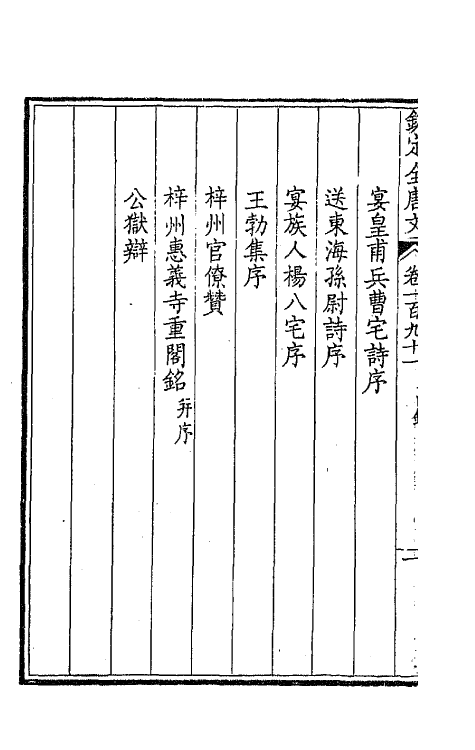 欽定全唐文 卷一百九十一 目錄 二
宴皇甫兵曹宅詩序
送東海孫尉詩序
宴族人楊八宅序
王勃集序
梓州官僚贊
梓州惠義寺重閣銘 并序
公獄辯